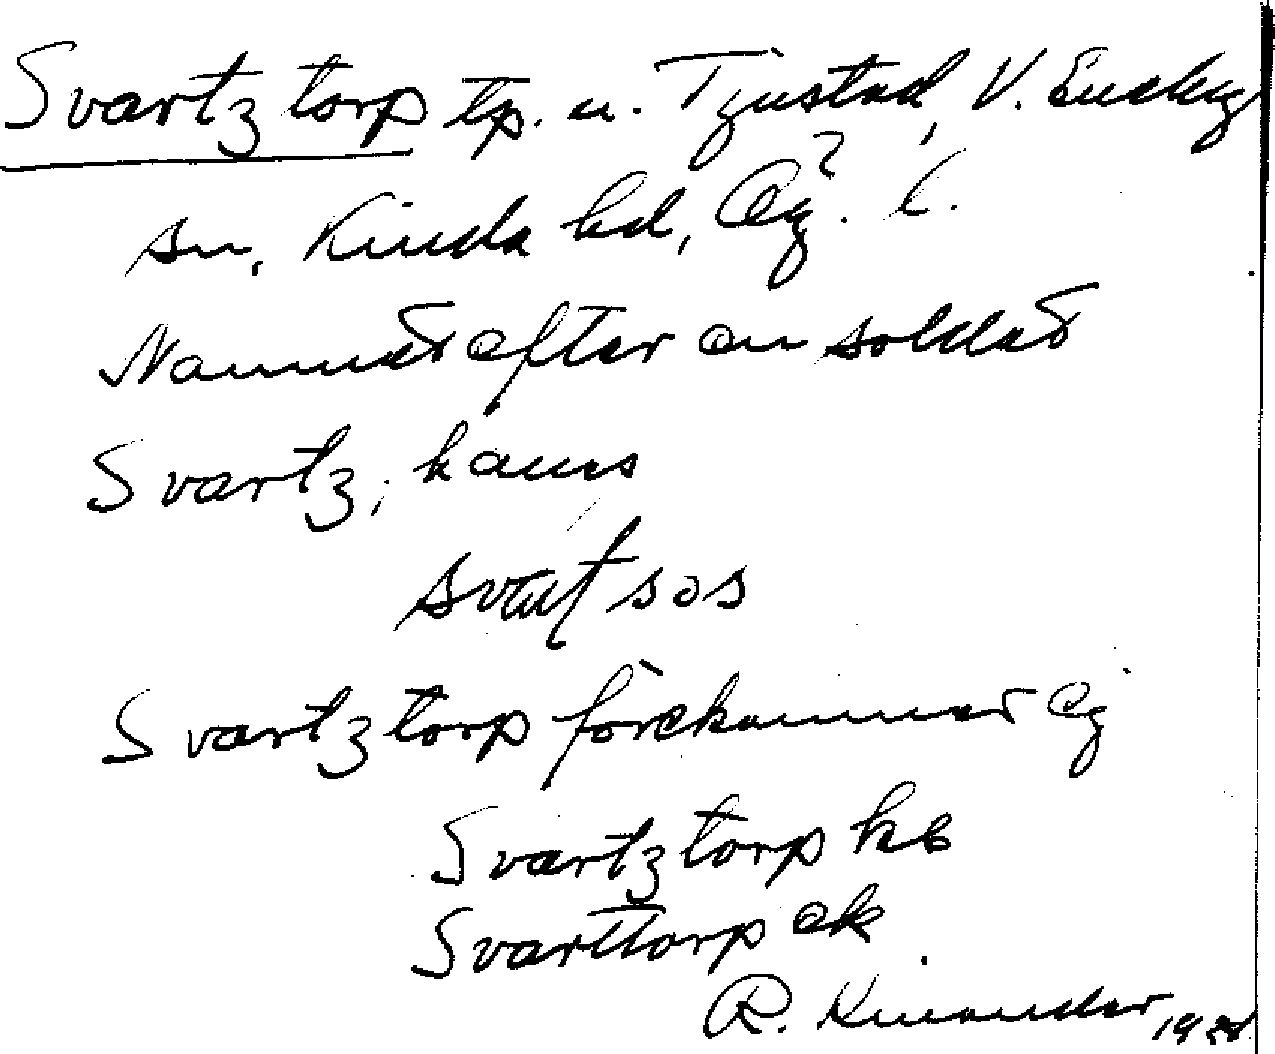 Svartztorp tp. u. Tjustad, V. Eneby
sn, Kinda hd, Ög. ?
Namnet efter en soldat
Svartz, kams
svat sos
Svartztorp förekommer ej
Svartztorp kb
Svarttorp ek
R. Kinander, 19